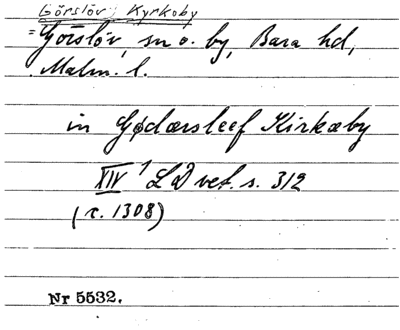 Görslöv, Kyrkoby
= Görslöv, sn o. by, Bara hd,
Malm. l.
in Gødærsleef Kirkæby
XIV 1 LD vet. s. 312
(c. 1308)
Nr 5532.